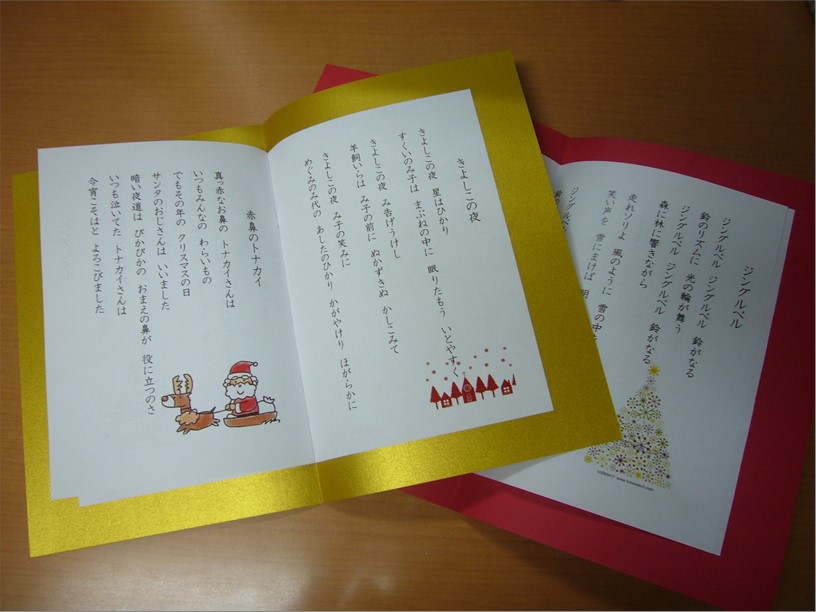 きよしこの夜
きよしこの夜 星はひかり
すくいのみ子は まぶねの中に 眠りたもう いとやすく
きよしこの夜 み告げうけし
羊飼いらは み子の前に ぬかずきぬ かしこみて
きよしこの夜 み子の笑みに
めぐみのみ代の あしたのひかり かがやけり ほがらかに
赤鼻のトナカイ
真っ赤なお鼻の トナカイさんは
いつもみんなの わらいもの
でもその年の クリスマスの日
サンタのおじさんは いいました
暗い夜道は ぴかぴかの おまえの鼻が 役に立つのさ
いつも泣いてた トナカイさんは
今宵こそはと よろこびました
ジングルベル
ジングルベル ジングルベル 鈴がなる
鈴のリズムに 光の輪が舞う
ジングルベル ジングルベル 鈴がなる
森に林に響きながら
走れソリよ 風のように 雪の中を
笑い声を 雪にまけば
ジングルベル